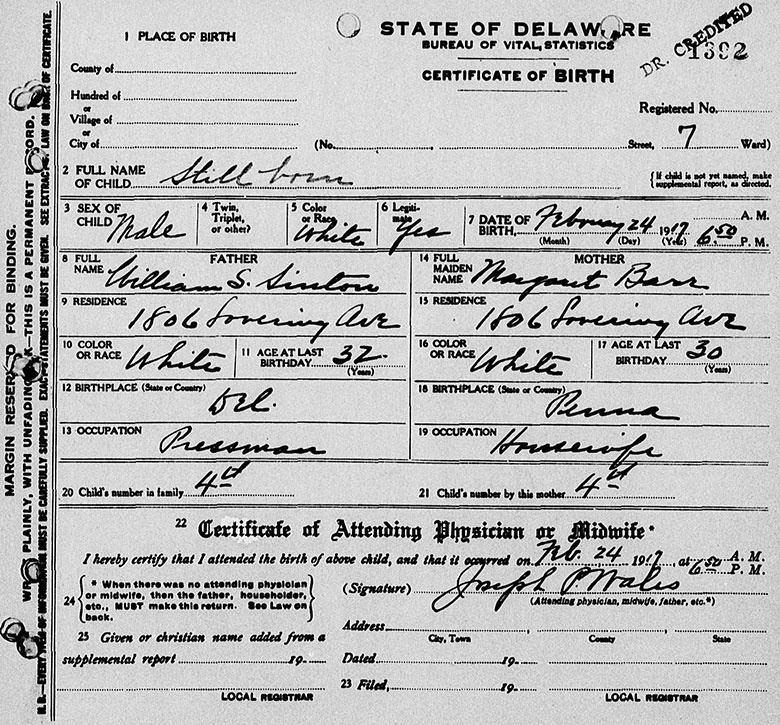 STATE OF DELAWARE
BUREAU OF VITAL STATISTICS
CERTIFICATE OF BIRTH
DR. CREDITED
1392
1 PLACE OF BIRTH
County of
Hundred of
or
Village of
or
City of
Registered No.
(No. Street, 7 Ward)
2 FULL NAME OF CHILD Still born
{If child is not yet named, make supplemental report, as directed.
3 SEX OF CHILD Male
4 Twin, Triplet, or other?
5 Color or Race White
6 Legiti-mate Yes
7 DATE OF BIRTH, February 24 1917 6.50 A. M. P. M.
(Month) (Day) (Year)
FATHER
8 FULL NAME William S. Sinton
9 RESIDENCE
1806 Lovering Ave
10 COLOR OR RACE White
11 AGE AT LAST BIRTHDAY 32
(Years)
12 BIRTHPLACE (State or Country)
Del.
13 OCCUPATION
Pressman
MOTHER
14 FULL MAIDEN NAME Margaret Barr
15 RESIDENCE
1806 Lovering Ave
16 COLOR OR RACE White
17 AGE AT LAST BIRTHDAY 30
(Years)
18 BIRTHPLACE (State or Country)
Penna
19 OCCUPATION
Housewife
20 Child's number in family 4th
21 Child's number by this mother 4th
22 Certificate of Attending Physician or Midwife*
I hereby certify that I attended the birth of above child, and that it occurred on Feb. 24 1917, at 6.50 A. M. P. M.
24 { * When there was no attending physician
or midwife, then the father, householder,
etc., MUST make this return. See Law on
back. }
(Signature) Joseph P Wales
(Attending physician, midwife, father, etc.*)
Address
City, Town County State
25 Given or christian name added from a
supplemental report 19
LOCAL REGISTRAR
Dated 19
23 Filed, 19
LOCAL REGISTRAR
MARGIN RESERVED FOR BINDING.
WRITE PLAINLY, WITH UNFADING INK—THIS IS A PERMANENT RECORD.
N. B.—EVERY ITEM OF INFORMATION MUST BE CAREFULLY SUPPLIED. EXACT STATEMENTS MUST BE GIVEN. SEE EXTRACTS, LAW ON BACK OF CERTIFICATE.